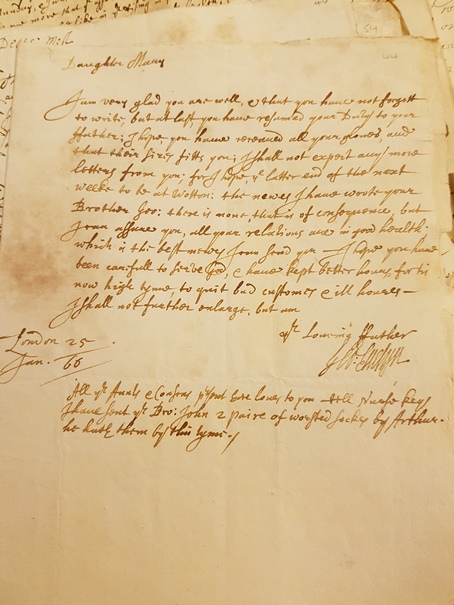 Deare Moll
Daughter Mary
I am very glad you are well, & that you have not forgott
to write, but at last you have resumed your Duty to your
ffather; I hope you have receaved all your gloves, and
that their sizes fitts you; I shall not expect any more
letters from you; for I hope ye latter end of the next
weeke to be at Wotton: the newes I have wrote your
Brother Geo: there is none, that is of consequence, but
I can assure you, all your relations are in good health.
which is the best newes I can send you — I hope you have
been carefull to serve God, & have kept better houres, for tis
now high tyme, to quit bad customes & ill houres —
I shall not further enlarge, but am
yr Loveing ffather
Geo: Evelyn
London 25
Jan. 66
All yr Aunts & Cosens psent there loves to you tell Nurse
I have sent yr Bro: John 2 paire of worsted sockes by Arthur.
he hath them by this tyme.